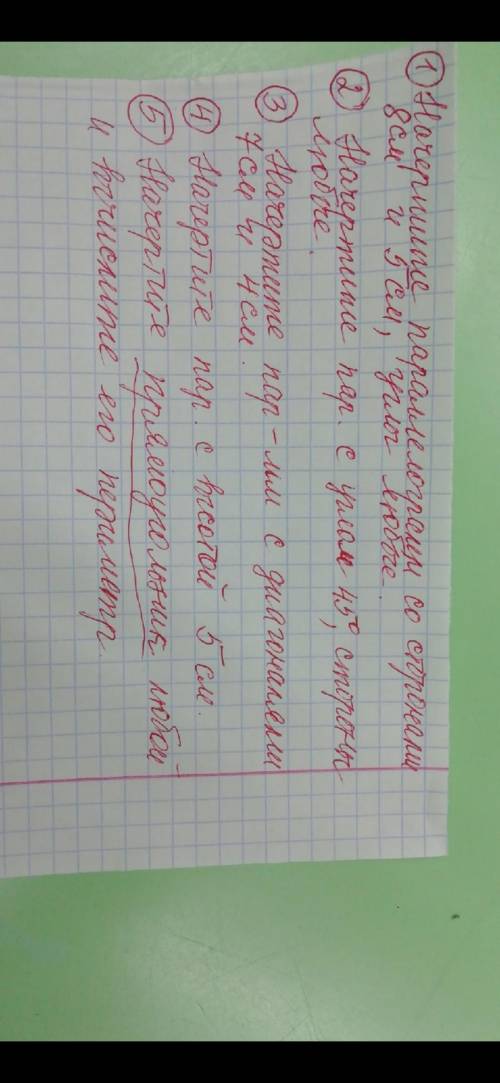 ① Начертите параллелограмм со сторонами
8см и 5см, углы любые.
② Начертите пар. с углом 45°, стороны
любые.
③ Начертите пар-мм с диагоналями
7см и 4см.
④ Начертите пар. с высотой 5см.
⑤ Начертите прямоугольник любой
и вычислите его периметр.